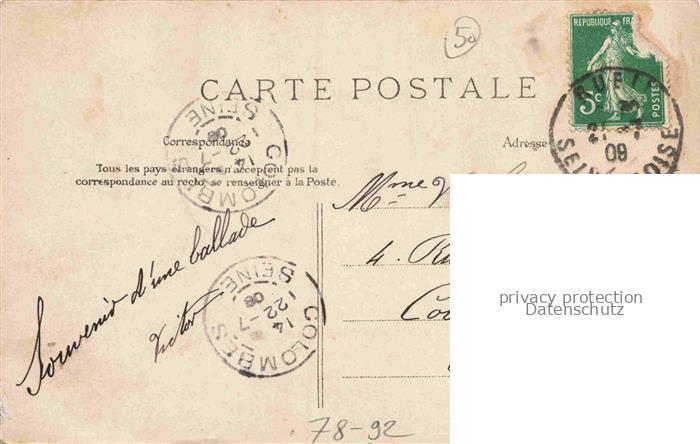 50
REPUBLIQUE FR
POSTES
5c
CARTE POSTALE
RUEIL
09
SEINE OISE
Correspondance
Adresse
Tous les pays étrangers n'acceptent pas la
correspondance au recto, se renseigner à la Poste.
COLOMBES
SEINE
14
22-7
09
Mme
4. Ru
Co
Souvenir d'une ballade
Victor
COLOMBES
SEINE
14
22-7
09
privacy protection
Datenschutz
78-92